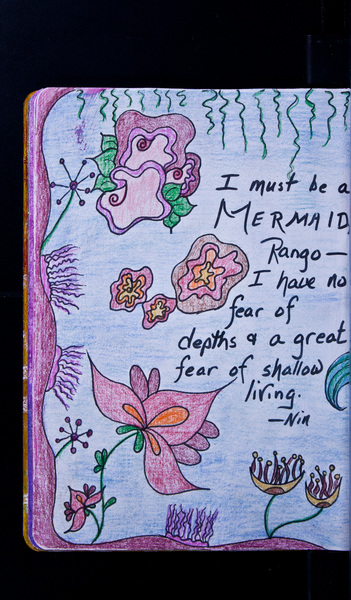 I must be a
MERMAID,
Rango—
I have no
fear of
depths & a great
fear of shallow
living.
—Nin